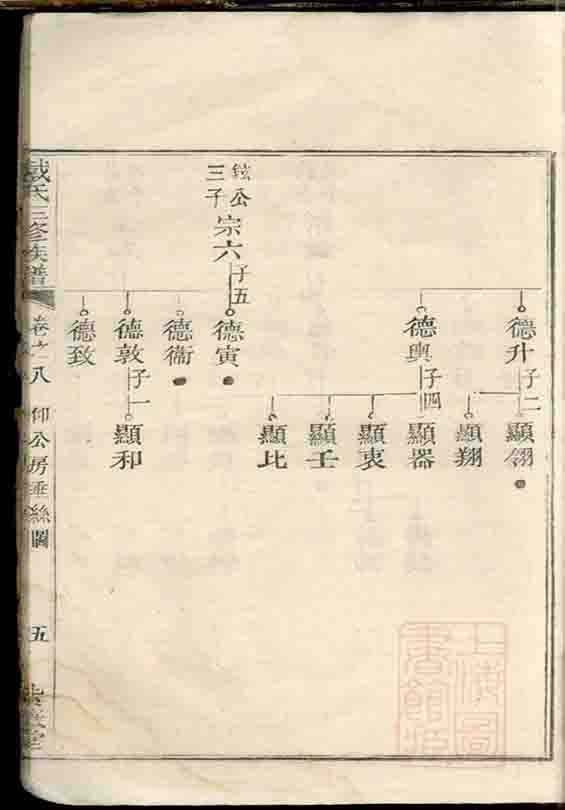 德升
子二
顯翎
顯翔
德興
子四
顯器
顯衷
顯壬
顯比
鉉公
三子
宗六
子五
德寅
德衞
德敦
子一
顯和
德致
戴氏三修族譜
卷之八
仰公房垂絲圖
五
上海圖
書館藏